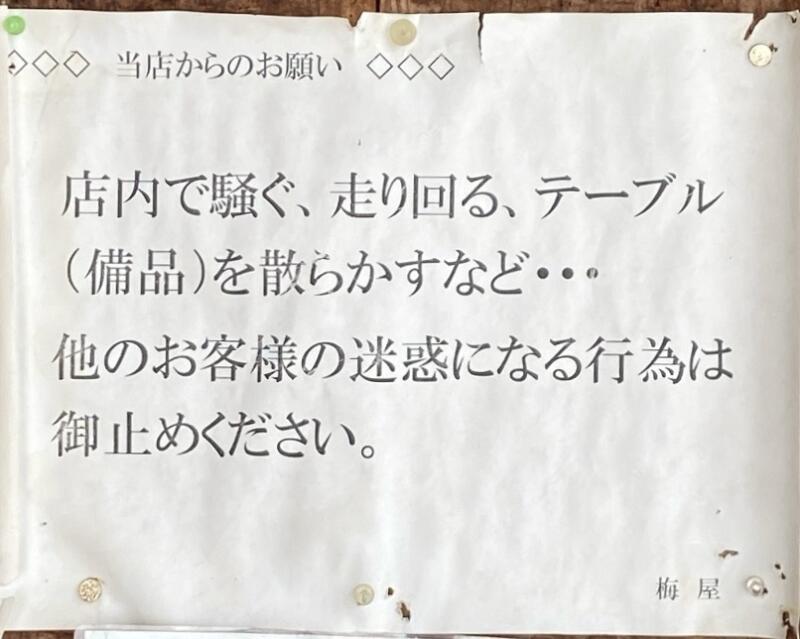 ◇◇◇ 当店からのお願い ◇◇◇
店内で騒ぐ、走り回る、テーブル
（備品）を散らかすなど・・・
他のお客様の迷惑になる行為は
御止めください。
梅屋